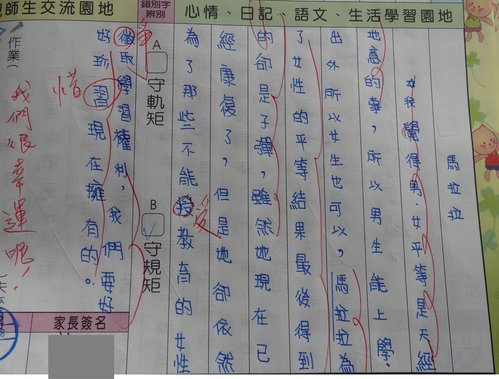 心情、日記、語文、生活學習園地
馬拉拉
我覺得男、女平等是天經
地意的事,所以男生能上學、
出外所以女生也可以,馬拉拉為
了女性的平等結果最後得到
的卻是子彈,雖然她現在已
經康復了,但是她卻依然
為了那些不能授教育的女性
受
徵取學習權利,我們要好
爭
好珍習現在擁有的。
惜
錯別字
辨別
A 守軌矩
B 守規矩
師生交流園地
作業
我們很幸運呢!
家長簽名